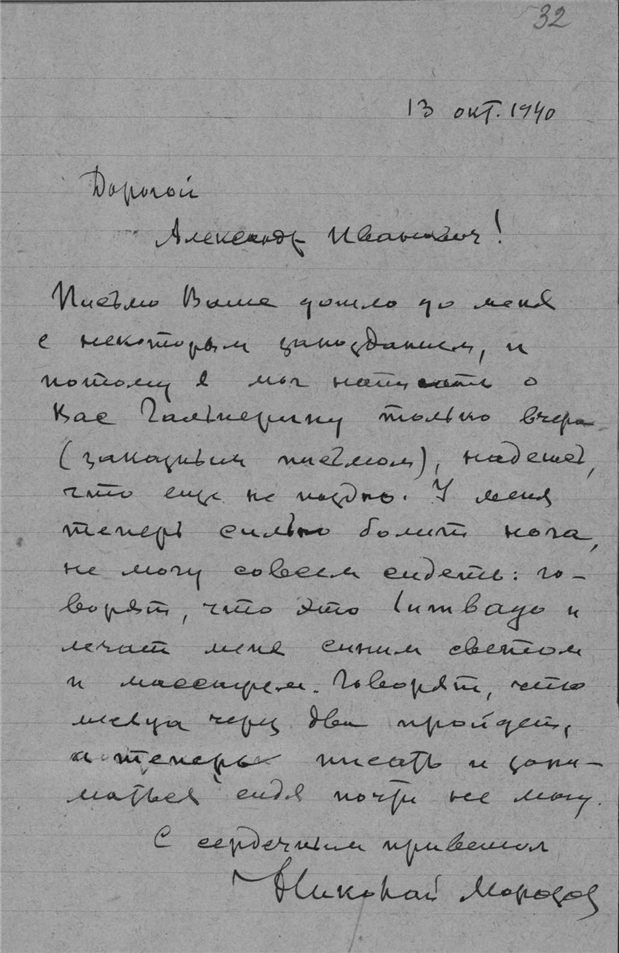 32
13 окт. 1940
Дорогой
Александр Иванович!
Письмо Ваше дошло до меня
с некоторым запозданием, и
потому я мог написать о
Вас Гальперину только вчера
(заказным письмом), надеюсь,
что еще не поздно. У меня
теперь сильно болит нога,
не могу совсем сидеть: го-
ворят, что это lumbago и
лечат меня синим светом
и массажем. Говорят, что
месяца через два пройдет,
а теперь писать и зани-
маться сидя почти не могу.
С сердечным приветом
Николай Морозов